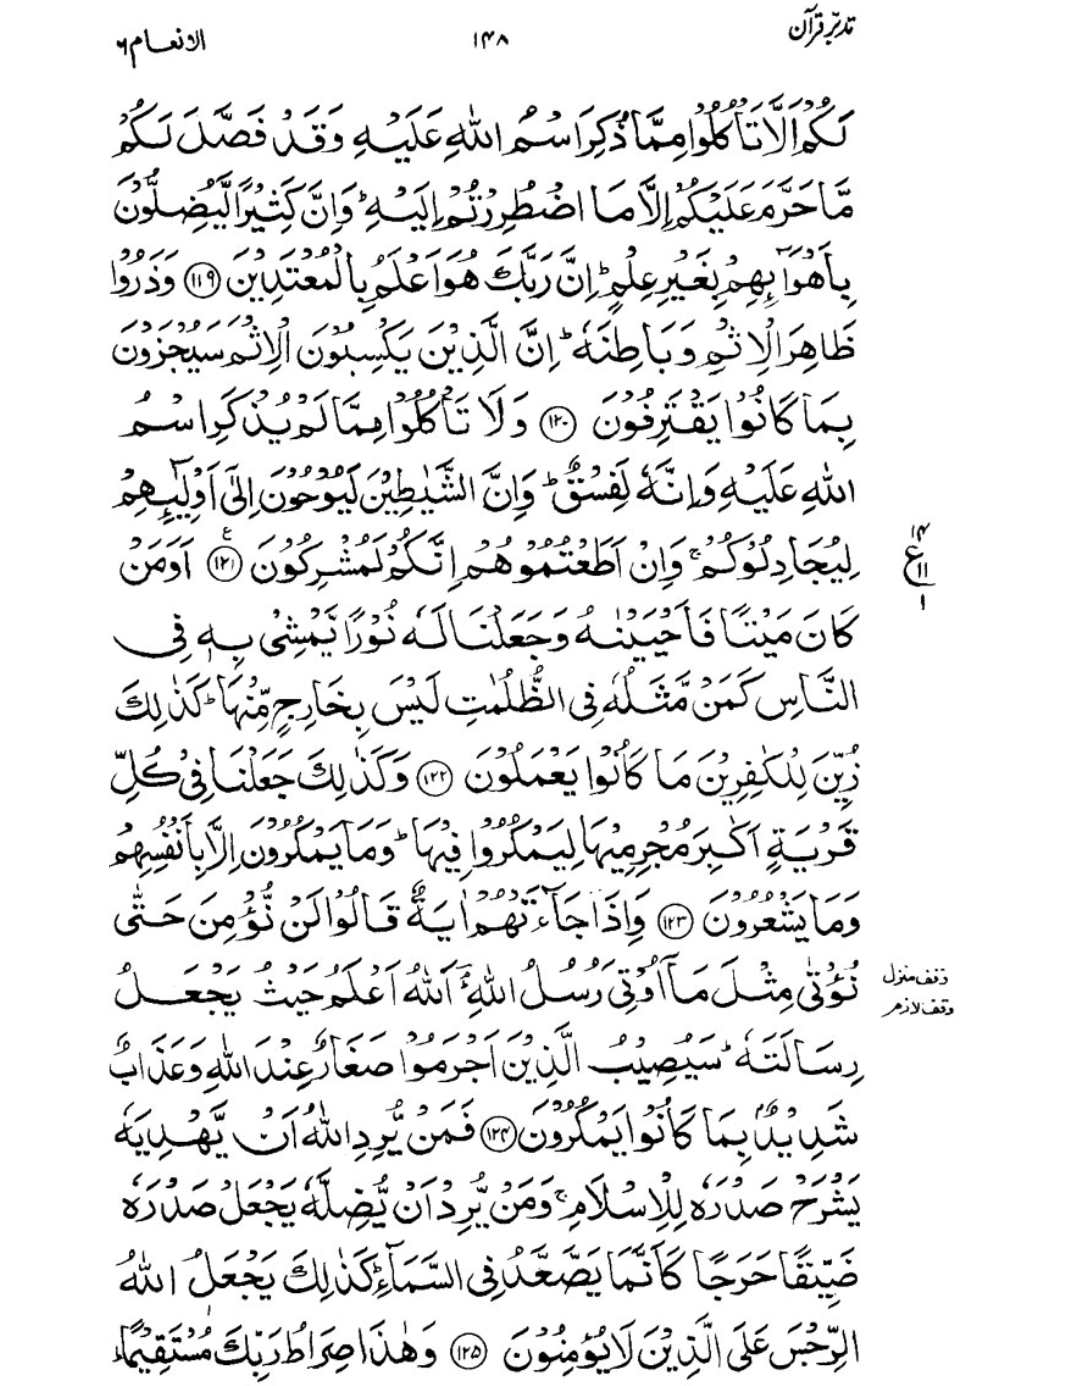 تدبّرِ قرآن ۱۴۸ الانعام ۶
لَكُمْ اَلَّا تَاْكُلُوْا مِمَّا ذُكِرَ اسْمُ اللّٰهِ عَلَيْهِ وَقَدْ فَصَّلَ لَكُمْ
مَّا حَرَّمَ عَلَيْكُمْ اِلَّا مَا اضْطُرِرْتُمْ اِلَيْهِ ؕ وَاِنَّ كَثِيْرًا لَّيُضِلُّوْنَ
بِاَهْوَآىِٕهِمْ بِغَيْرِ عِلْمٍ ؕ اِنَّ رَبَّكَ هُوَ اَعْلَمُ بِالْمُعْتَدِيْنَ ﴿۱۱۹﴾ وَذَرُوْا
ظَاهِرَ الْاِثْمِ وَبَاطِنَهٗ ؕ اِنَّ الَّذِيْنَ يَكْسِبُوْنَ الْاِثْمَ سَيُجْزَوْنَ
بِمَا كَانُوْا يَقْتَرِفُوْنَ ﴿۱۲۰﴾ وَلَا تَاْكُلُوْا مِمَّا لَمْ يُذْكَرِ اسْمُ
اللّٰهِ عَلَيْهِ وَاِنَّهٗ لَفِسْقٌ ؕ وَاِنَّ الشَّيٰطِيْنَ لَيُوْحُوْنَ اِلٰٓى اَوْلِيٰٓـِٕهِمْ
لِيُجَادِلُوْكُمْ ۚ وَاِنْ اَطَعْتُمُوْهُمْ اِنَّكُمْ لَمُشْرِكُوْنَ ﴿۱۲۱﴾ اَوَمَنْ
۱۴
ع
۱۱
۱
كَانَ مَيْتًا فَاَحْيَيْنٰهُ وَجَعَلْنَا لَهٗ نُوْرًا يَّمْشِيْ بِهٖ فِي
النَّاسِ كَمَنْ مَّثَلُهٗ فِي الظُّلُمٰتِ لَيْسَ بِخَارِجٍ مِّنْهَا ؕ كَذٰلِكَ
زُيِّنَ لِلْكٰفِرِيْنَ مَا كَانُوْا يَعْمَلُوْنَ ﴿۱۲۲﴾ وَكَذٰلِكَ جَعَلْنَا فِيْ كُلِّ
قَرْيَةٍ اَكٰبِرَ مُجْرِمِيْهَا لِيَمْكُرُوْا فِيْهَا ؕ وَمَا يَمْكُرُوْنَ اِلَّا بِاَنْفُسِهِمْ
وَمَا يَشْعُرُوْنَ ﴿۱۲۳﴾ وَاِذَا جَآءَتْهُمْ اٰيَةٌ قَالُوْا لَنْ نُّؤْمِنَ حَتّٰى
نُؤْتٰى مِثْلَ مَآ اُوْتِيَ رُسُلُ اللّٰهِ ؔۘ اَللّٰهُ اَعْلَمُ حَيْثُ يَجْعَلُ
وقف منزل
وقف لازم
رِسَالَتَهٗ ؕ سَيُصِيْبُ الَّذِيْنَ اَجْرَمُوْا صَغَارٌ عِنْدَ اللّٰهِ وَعَذَابٌ
شَدِيْدٌۢ بِمَا كَانُوْا يَمْكُرُوْنَ ﴿۱۲۴﴾ فَمَنْ يُّرِدِ اللّٰهُ اَنْ يَّهْدِيَهٗ
يَشْرَحْ صَدْرَهٗ لِلْاِسْلَامِ ۚ وَمَنْ يُّرِدْ اَنْ يُّضِلَّهٗ يَجْعَلْ صَدْرَهٗ
ضَيِّقًا حَرَجًا كَاَنَّمَا يَصَّعَّدُ فِي السَّمَآءِ ؕ كَذٰلِكَ يَجْعَلُ اللّٰهُ
الرِّجْسَ عَلَى الَّذِيْنَ لَا يُؤْمِنُوْنَ ﴿۱۲۵﴾ وَهٰذَا صِرَاطُ رَبِّكَ مُسْتَقِيْمًا